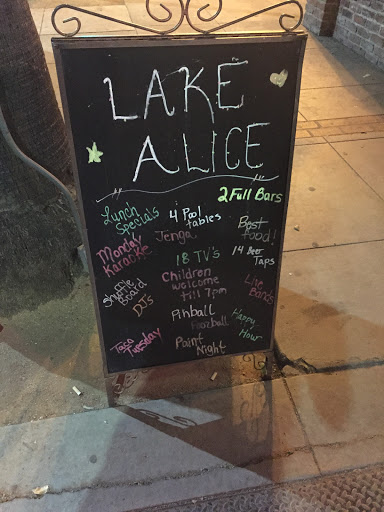 LAKE
ALICE
2 Full Bars
Lunch
Specials
4 Pool
tables
Best
food!
Monday
Karaoke
Jenga
18 TV's
14 Beer
Taps
Shuffle
Board
DJ's
Children
welcome
till 7pm
Live
Bands
Pinball
Foozball
Happy
Hour
Taco
Tuesday
Paint
Night